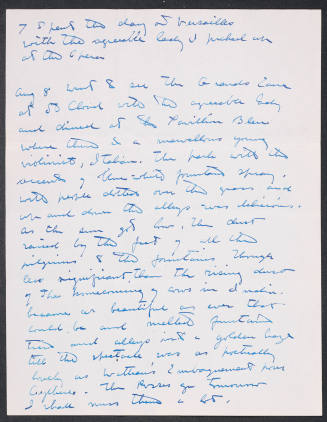 7 Spent the day at Versailles
with the agreeable lady I picked up
at the Opera
Aug 8 Went to see the Grands Eaux
at St Cloud with the agreeable lady
and dined at the Pavillon Bleu
where there is a marvellous young
violinist, Italian. The park with its
of three white fountain spray,
with people dotted over the grass and
up and down the alleys was delicious.
As the sun got low, the dust
raised by the feet of all the
pilgrims to the fountains, though
less significant than the rising dust
of the homecoming of cows in India.
became as beautiful as ever that
could be and melted fountain
tree and alleys into a golden haze
till the spectacle was as poetically
lovely as Watteau's Embarquement pour
Cythère. The go tomorrow
I shall miss them a lot.